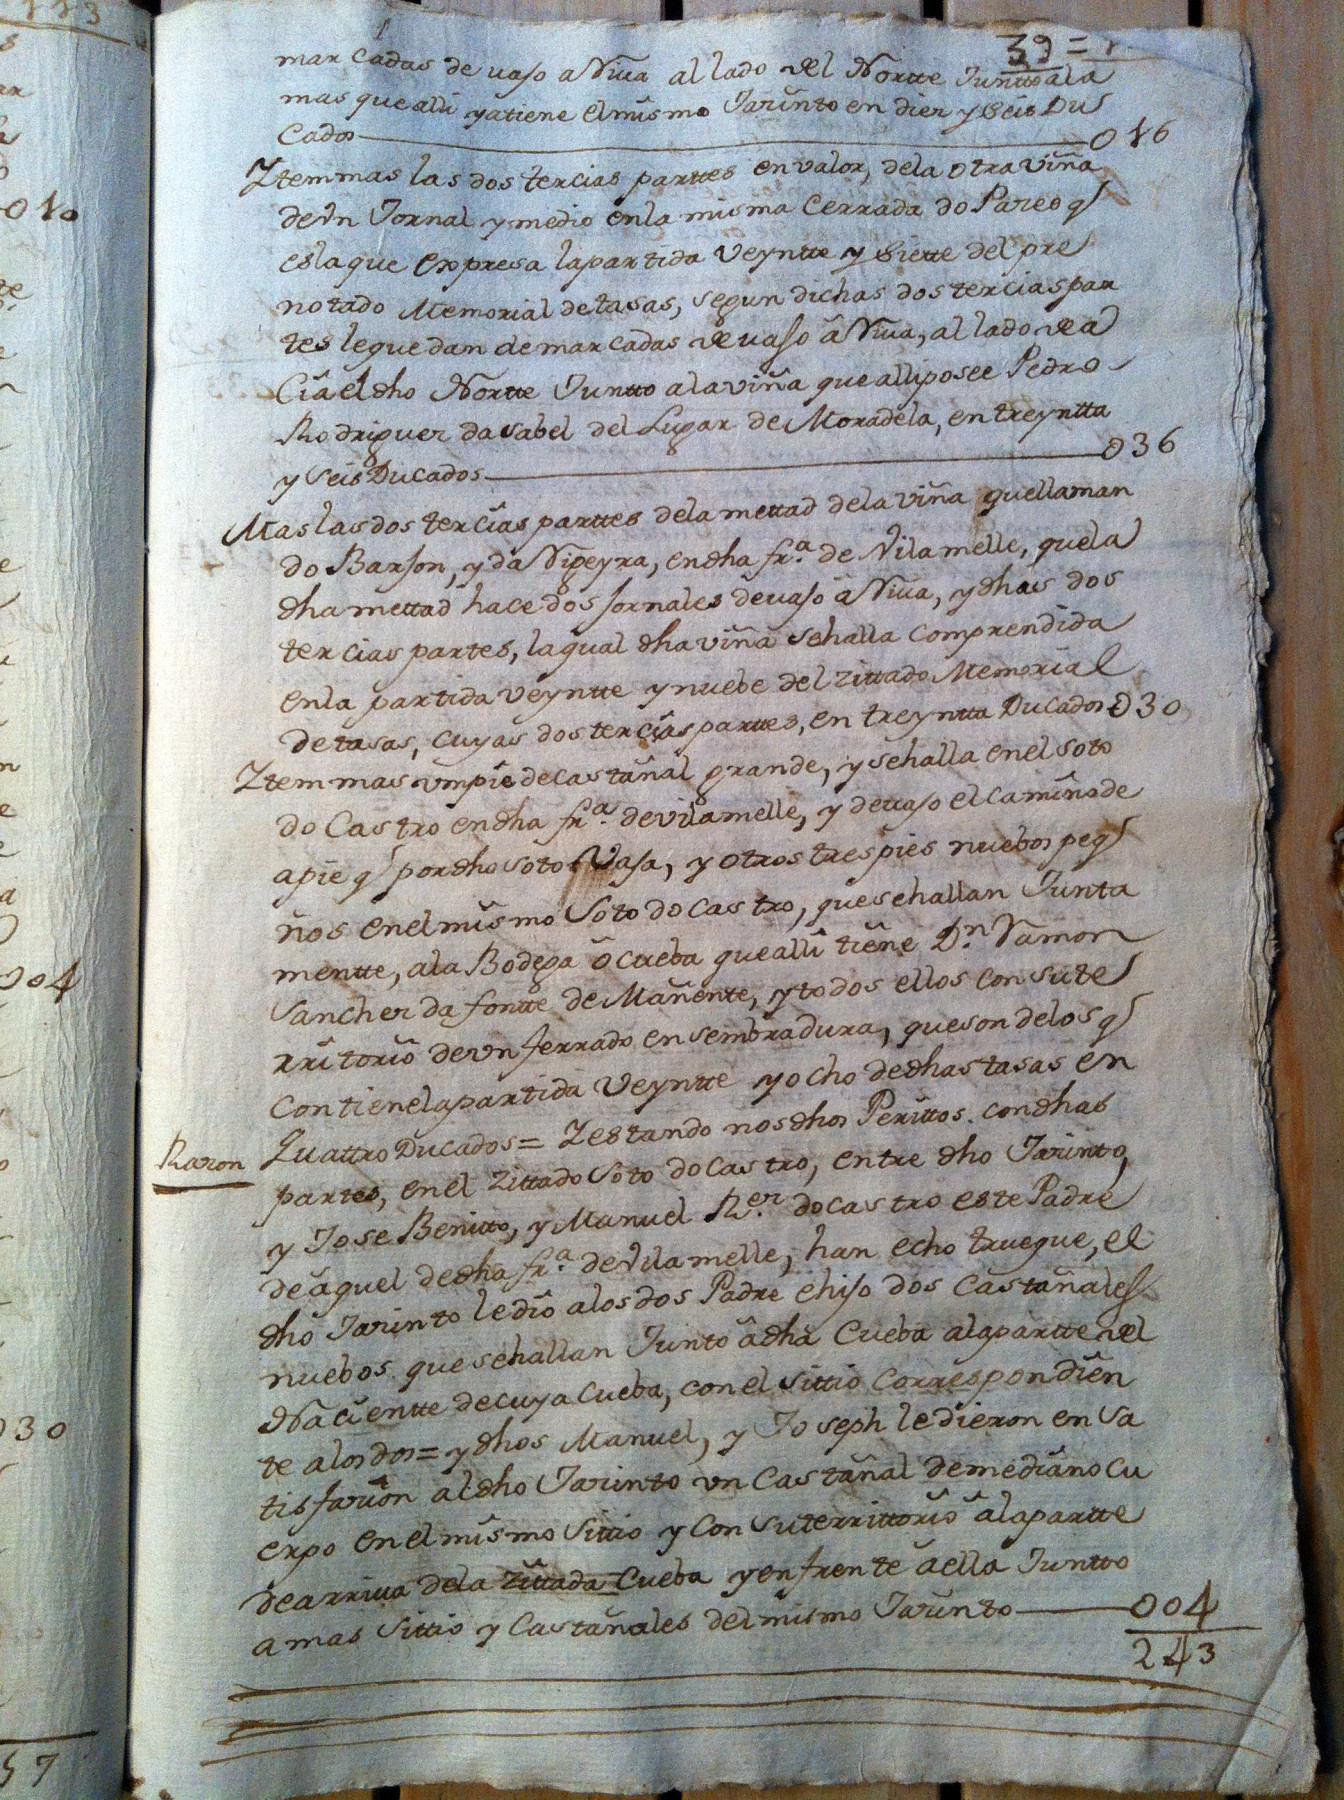 113
39=
marcadas de vaso a Niva al lado del Nortte Juntto ala
mas que alli ya tiene el mismo Jazinto en diez y seis Du
cados 016
Ytem mas las dos tercias parttes en valor, dela otra viña
de Vn Jornal y medio enla misma Cerrada do Pareo q
es la que expresa la partida Veyntte y Siette del pre
notado Memorial de tasas, segun dichas dos tercias par
tes le quedan demarcadas de vaso â Niva, al lado de a
Cia el dho Nortte Juntto ala viña que alli posee Pedro
Rodriguez da Sabel del Lugar de Moradela, en treyntta
y Seis Ducados 036
Mas las dos tercias parttes dela mettad dela viña que llaman
do Barson, y da Nigeyra, en dha frª. de Vilamelle, que la
dha mettad hace dos jornales de vaso â Niva, y dhas dos
tercias partes, la qual dha viña se halla comprendida
enla partida veyntte y nuebe del zittado Memorial
de tasas, cuyas dos tercias parttes, en treyntta Ducados 030
Ytem mas vn pie de castañal grande, y se halla en el soto
do Castro en dha frª. de vilamelle, y de vaso el camino de
apie q por dho soto Vasa, y otros tres pies nuebos peq
ños en el mismo Soto do Castro, que se hallan Junta
mentte, ala Bodega ô cueba que alli tiene Dn. Ramon
Sanchez da fontte de Mañente, y todos ellos con su te
rritorio de vn ferrado en sembradura, que son delos q
contiene la partida Veyntte y ocho de dhas tasas en
Quattro Ducados = Y estando nos dhos Perittos. con dhas
Razon
partes, en el zittado Soto do Castro, entre dho Jazintto,
y Jose Benitto, y Manuel Rez. do Castro este Padre
de âquel de dha frª. de Vilamelle, han echo trueque, el
dho Jazinto le dio a los dos Padre e hijo dos Castañales
nuebos que se hallan Junto â dha Cueba ala partte del
Nacientte de cuya Cueba, con el Sittio Correspondien
te alos dos = y dhos Manuel, y Joseph le dieron en Sa
tisfazion al dho Jazinto vn Castañal de mediano Cu
erpo en el mismo Sittio y Con Su territtorio â la partte
de arriva dela zittada Cueba y en frente â ella Juntto
a mas Sittio y Castañales del mismo Jazinto 004
243
010
004
030
57